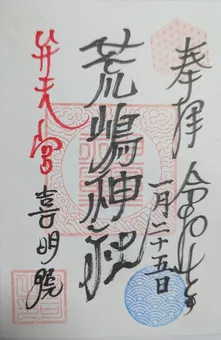 奉拝
令和七年
一月二十五日
荒嶋神社
弁天宮
喜明院